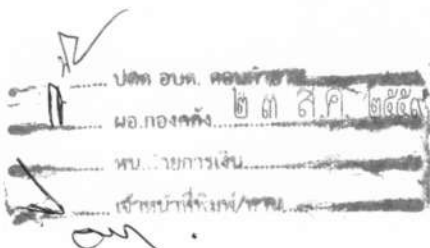 ปลัด อบต.
ผอ.กองคลัง ๒๓ ส.ค. ๒๕๕๙
หน.ฝ่ายการเงิน
เจ้าหน้าที่พิมพ์/ทาน